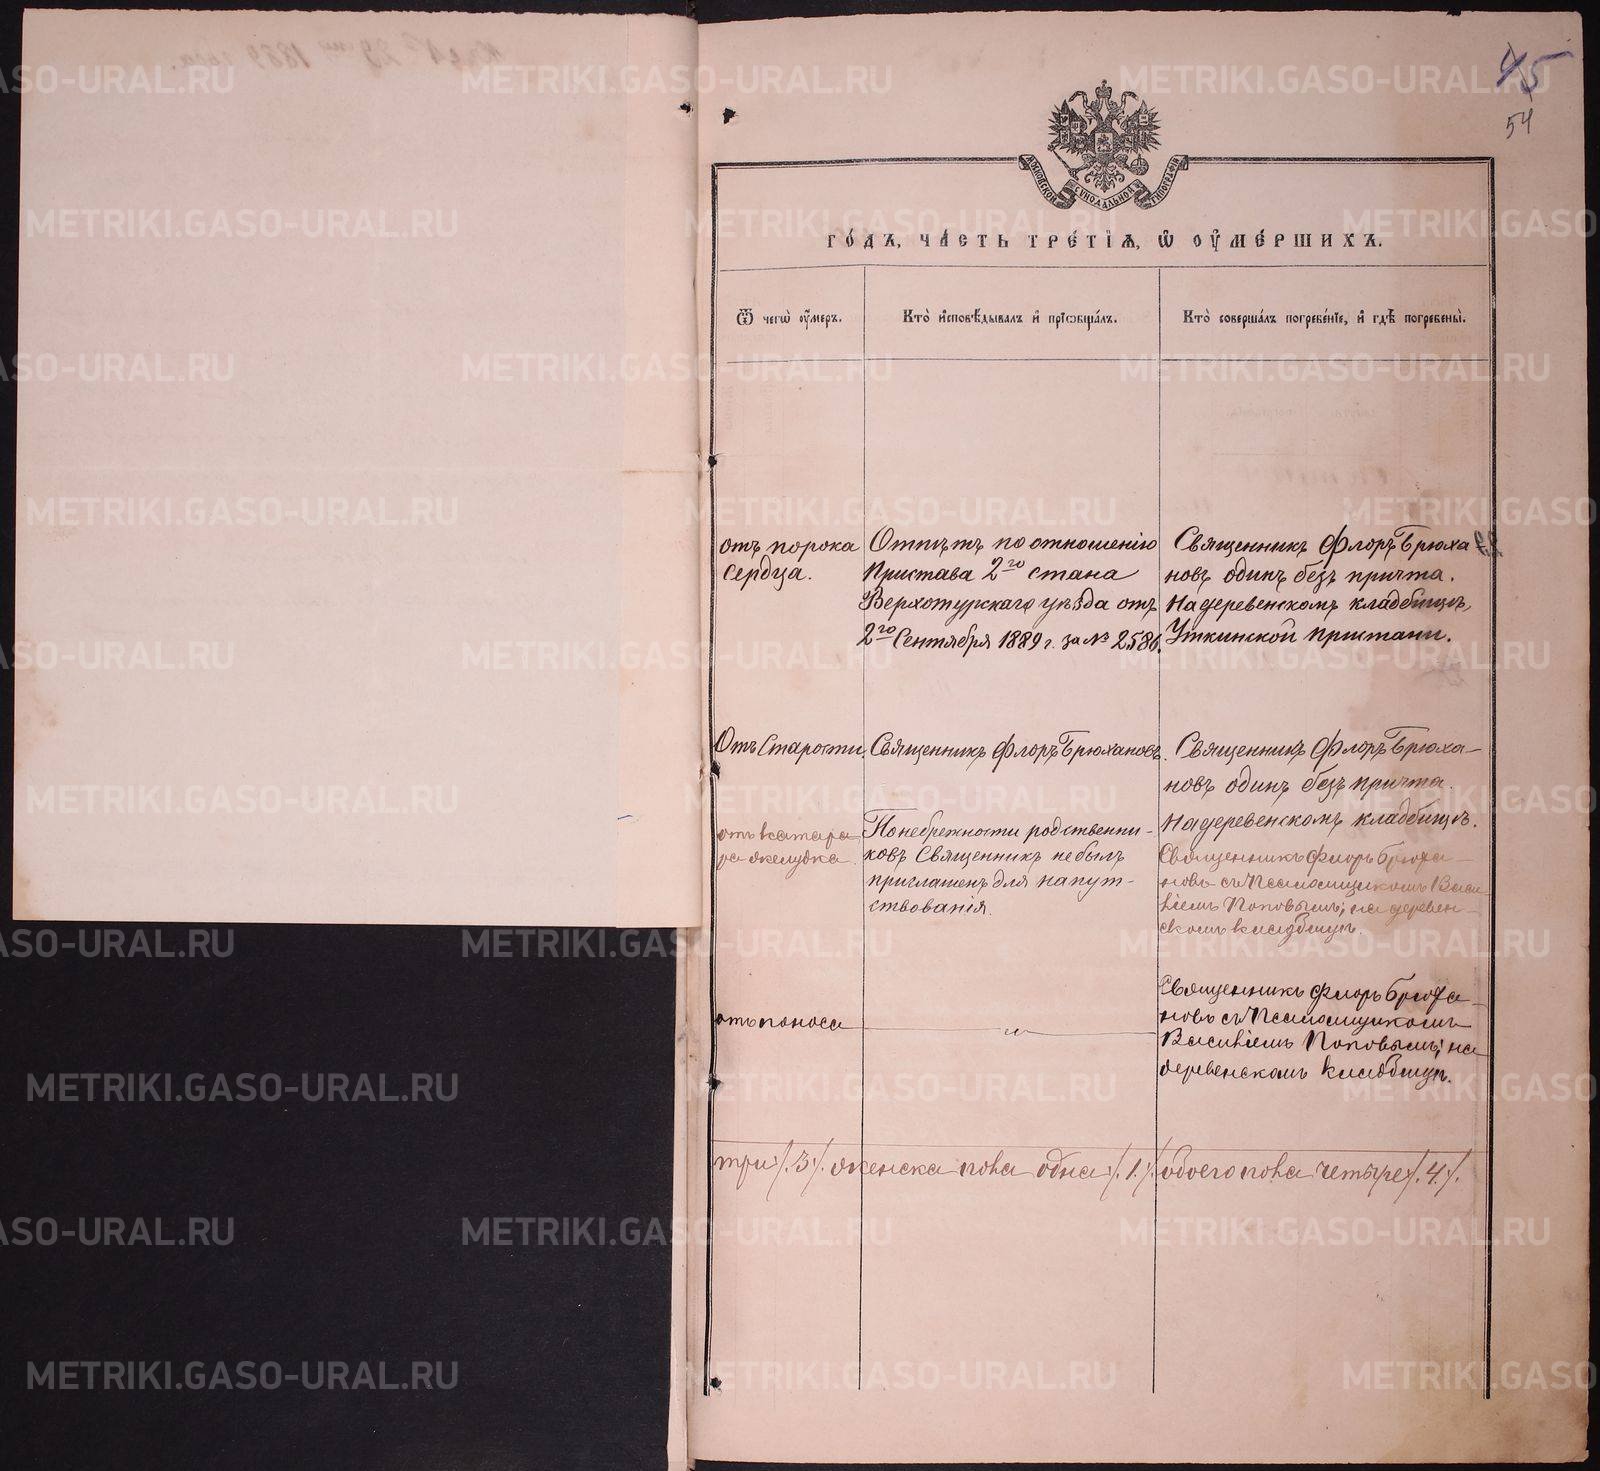 45
54
МОСКОВСКОЙ СѴНОДАЛЬНОЙ ТИПОГРАФІИ
ГО́ДЪ, ЧА́СТЬ ТРЕ́ТІѦ, Ѡ҆ ОУ҆МЕ́РШИХЪ.
Ѿ чегѡ̀ оу҆́меръ.
Кто̀ и҆сповѣ́дывалъ и҆ прїѡбща́лъ.
Кто̀ соверша́лъ погребе́нїе, и҆ гдѣ̀ погребены̀.
отъ порока
сердца.
Отпѣтъ по отношенію
Пристава 2го стана
Верхотурскаго уѣзда отъ
2го Сентября 1889 г. за № 2586.
Священникъ Флоръ Брюха
новъ одинъ безъ причта.
На деревенскомъ кладбищѣ,
Уткинской пристани.
Отъ старости.
Священникъ Флоръ Брюхановъ.
Священникъ Флоръ Брюха-
новъ одинъ безъ причта.
На деревенскомъ кладбищѣ.
отъ катара-
ра желудка.
По небрежности родственни-
ковъ Священникъ не былъ
приглашенъ для напут-
ствованія.
Священникъ Флоръ Брюха-
новъ съ Псаломщикомъ Васи
ліемъ Поповымъ; на деревен-
скомъ кладбищѣ.
отъ поноса
Священникъ Флоръ Брюха-
новъ съ Псаломщикомъ
Василіемъ Поповымъ; на
деревенскомъ кладбищѣ.
три /.3./. женска пола одна /.1./. обоего пола четыре /.4./.
METRIKI.GASO-URAL.RU